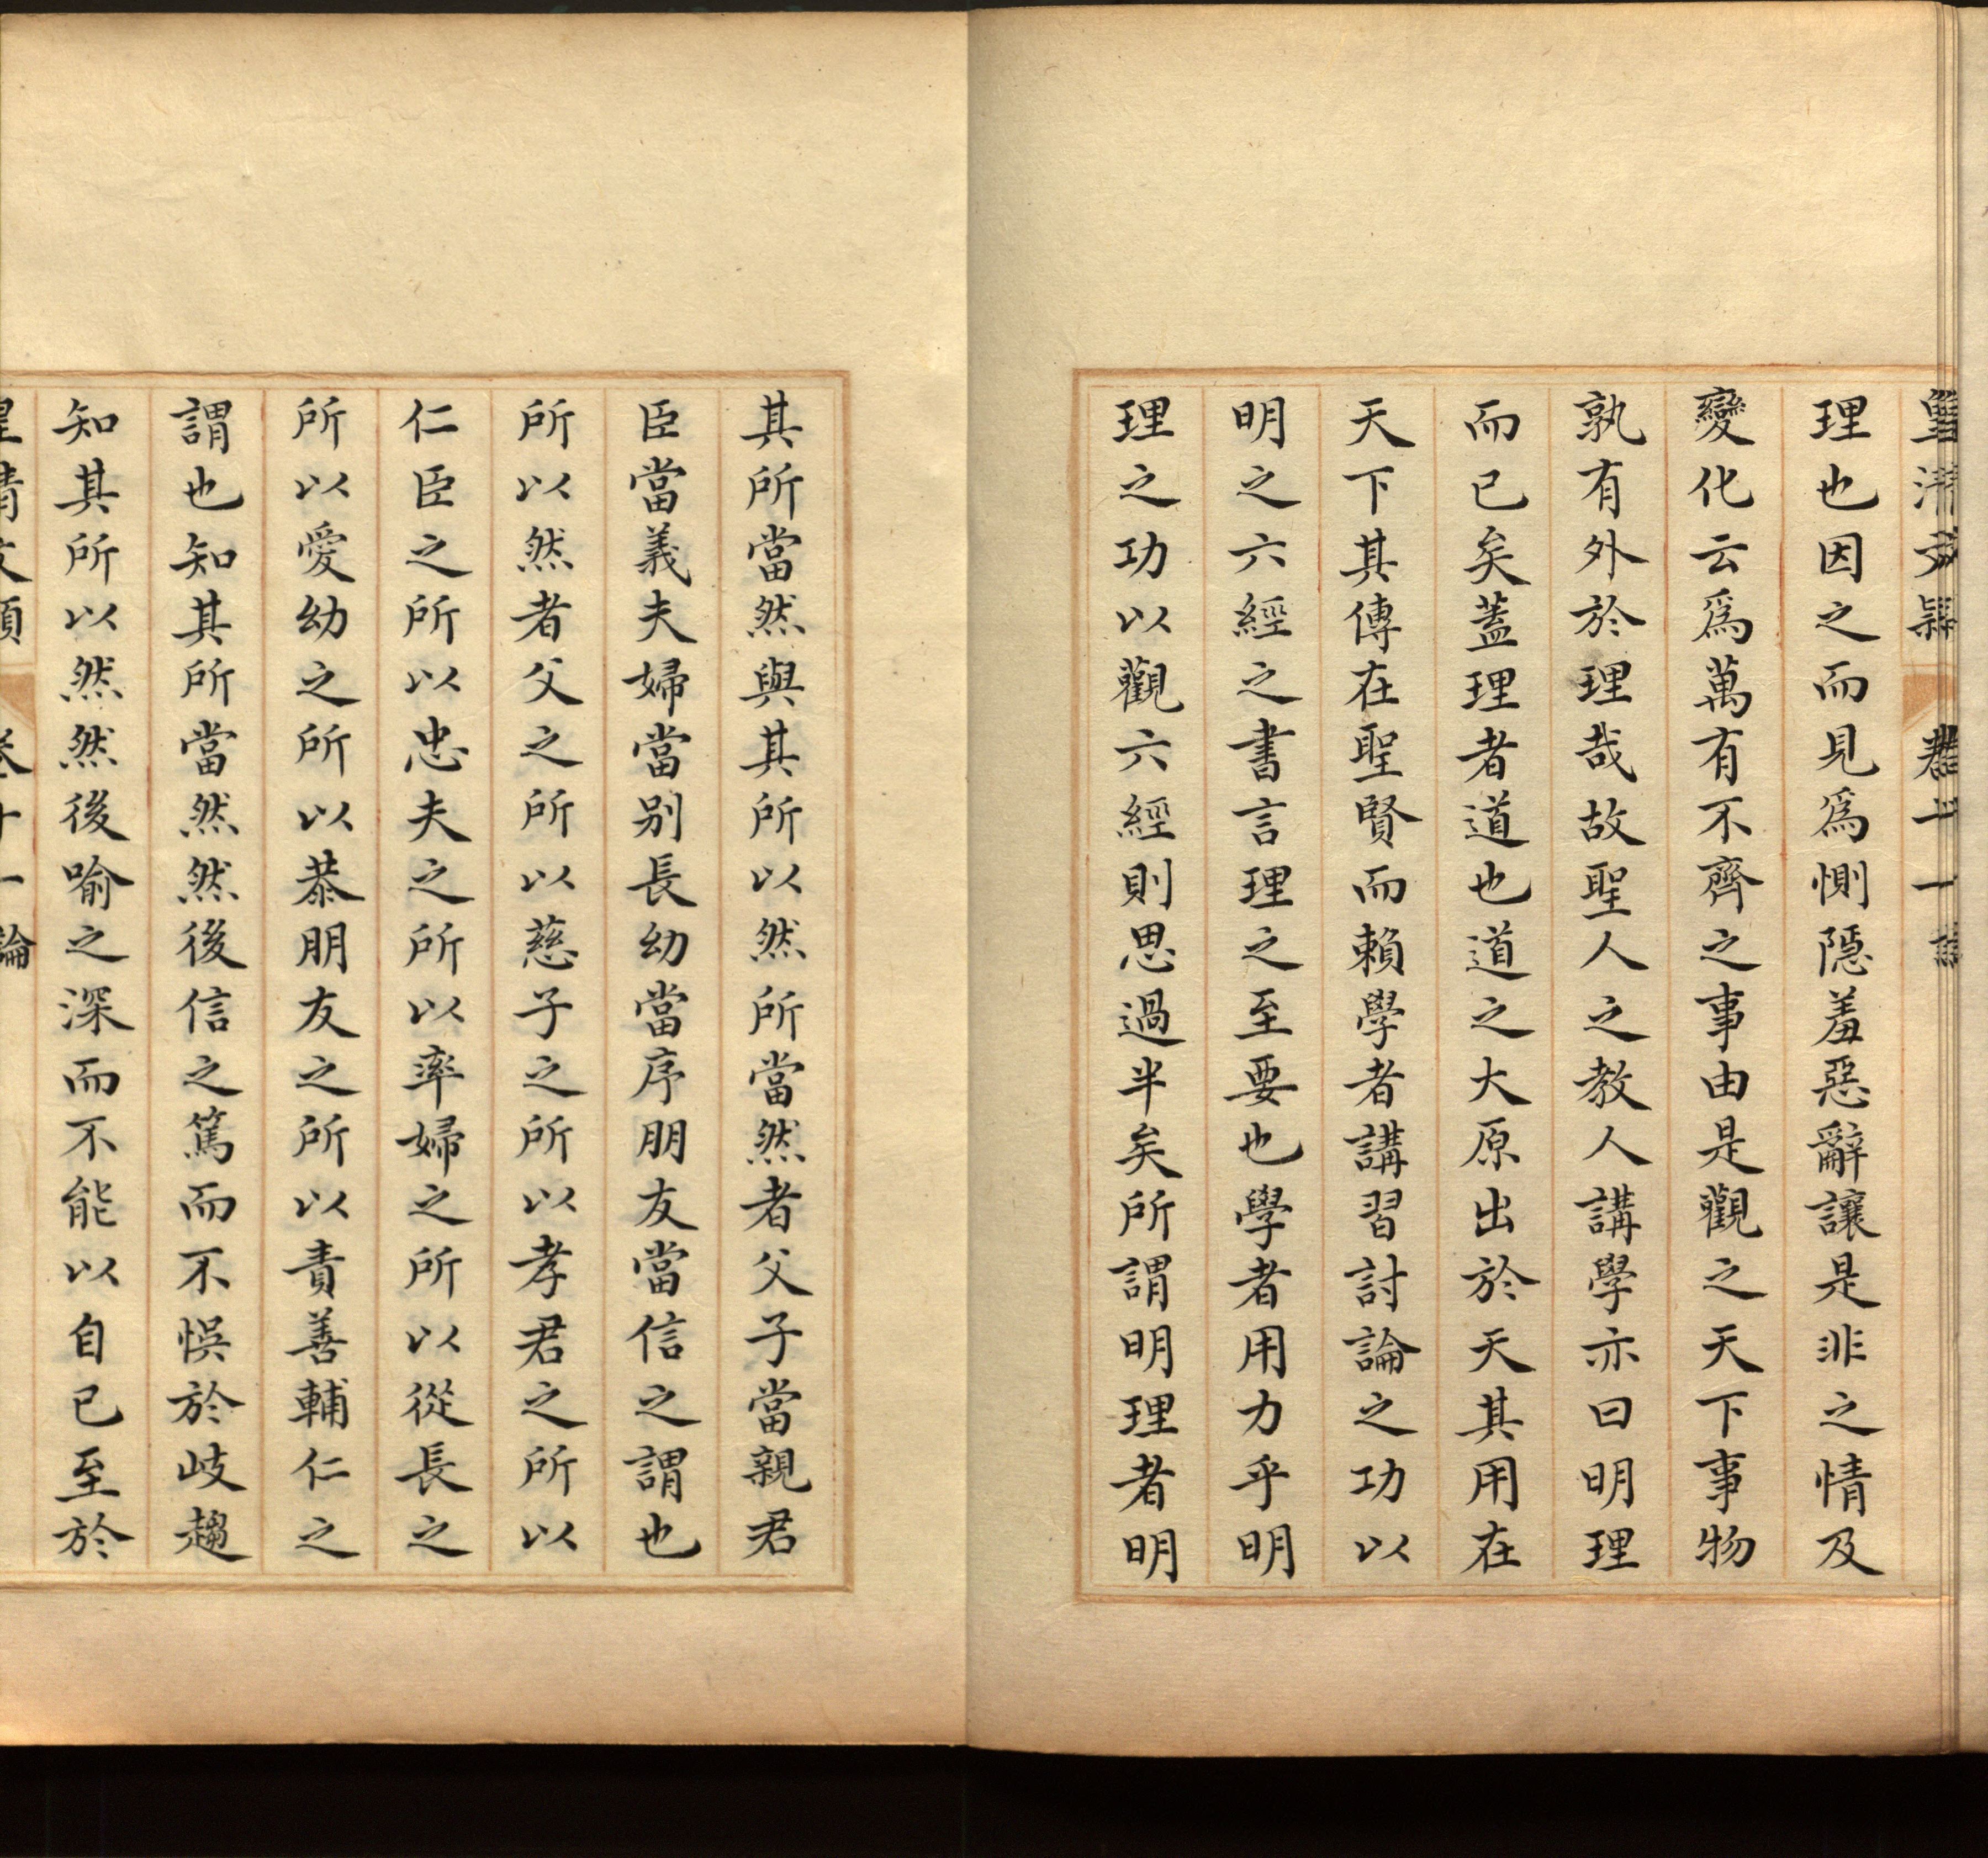 理也因之而見爲惻隱羞惡辭讓是非之情及
變化云爲萬有不齊之事由是觀之天下事物
孰有外於理哉故聖人之教人講學亦曰明理
而已矣蓋理者道也道之大原出於天其用在
天下其傳在聖賢而賴學者講習討論之功以
明之六經之書言理之至要也學者用力乎明
理之功以觀六經則思過半矣所謂明理者明
其所當然與其所以然所當然者父子當親君
臣當義夫婦當别長幼當序朋友當信之謂也
所以然者父之所以慈子之所以孝君之所以
仁臣之所以忠夫之所以率婦之所以從長之
所以愛幼之所以恭朋友之所以責善輔仁之
謂也知其所當然然後信之篤而不悞於歧趨
知其所以然然後喻之深而不能以自已至於